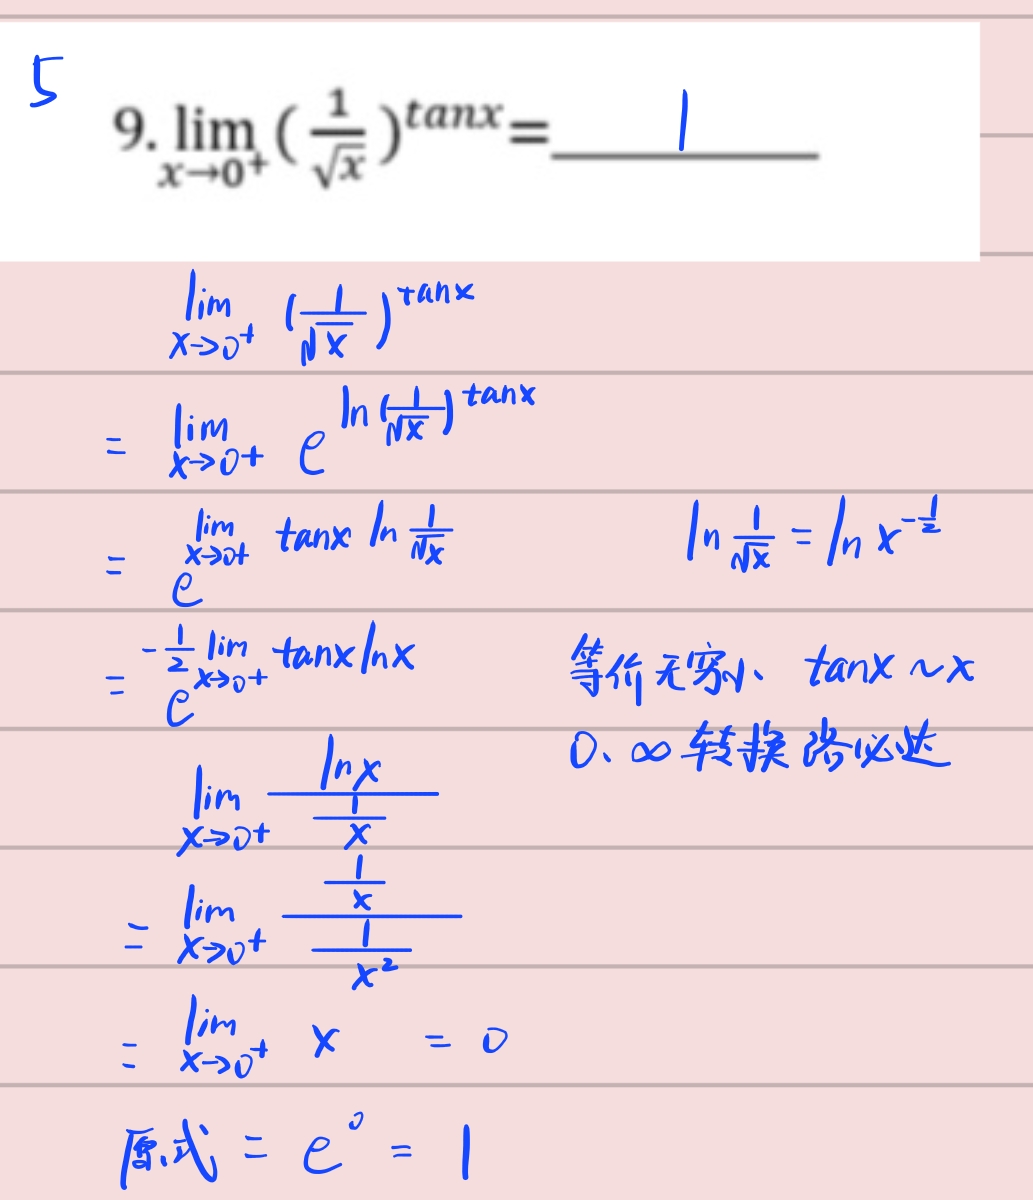 5
9. lim x→0⁺ (1/√x)^tanx = 1
lim x→0⁺ (1/√x)^tanx
= lim x→0⁺ e^ln(1/√x)^tanx
= e^lim x→0⁺ tanx ln 1/√x    ln 1/√x = ln x^-1/2
= e^-1/2 lim x→0⁺ tanx lnx    等价无穷小、tanx ~ x
0、∞ 转换 洛必达
lim x→0⁺ lnx / (1/x)
= lim x→0⁺ (1/x) / (1/x²)
= lim x→0⁺ x = 0
原式 = e⁰ = 1